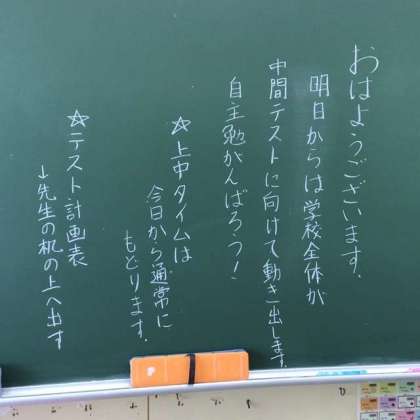 おはようございます。
明日からは学校全体が
中間テストに向けて動き出します。
自主勉がんばろう！
☆上中タイムは
今日から通常に
もどります。
☆テスト計画表
→先生の机の上へ出す